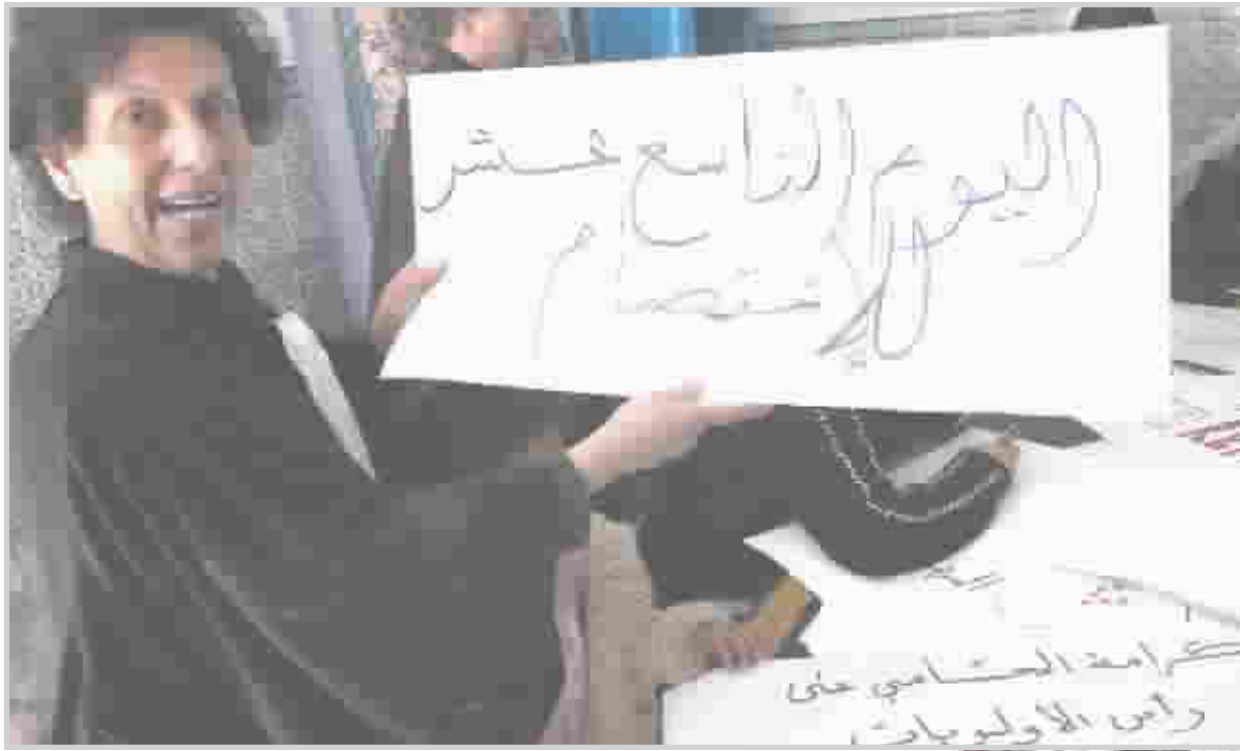 اليوم التاسع عشر
للإعتصام
كرامة المحامي على
رأس الأولويات